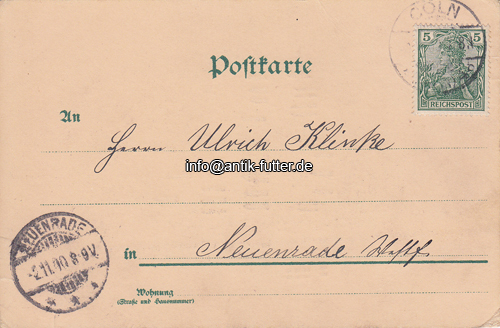 CÖLN
5 5
REICHSPOST
Postkarte
An
Herrn Ulrich Klinke
info@antik-futter.de
NEUENRADE
2.11.10.8-9V.
in
Neuenrade Westf.
Wohnung
(Straße und Hausnummer)